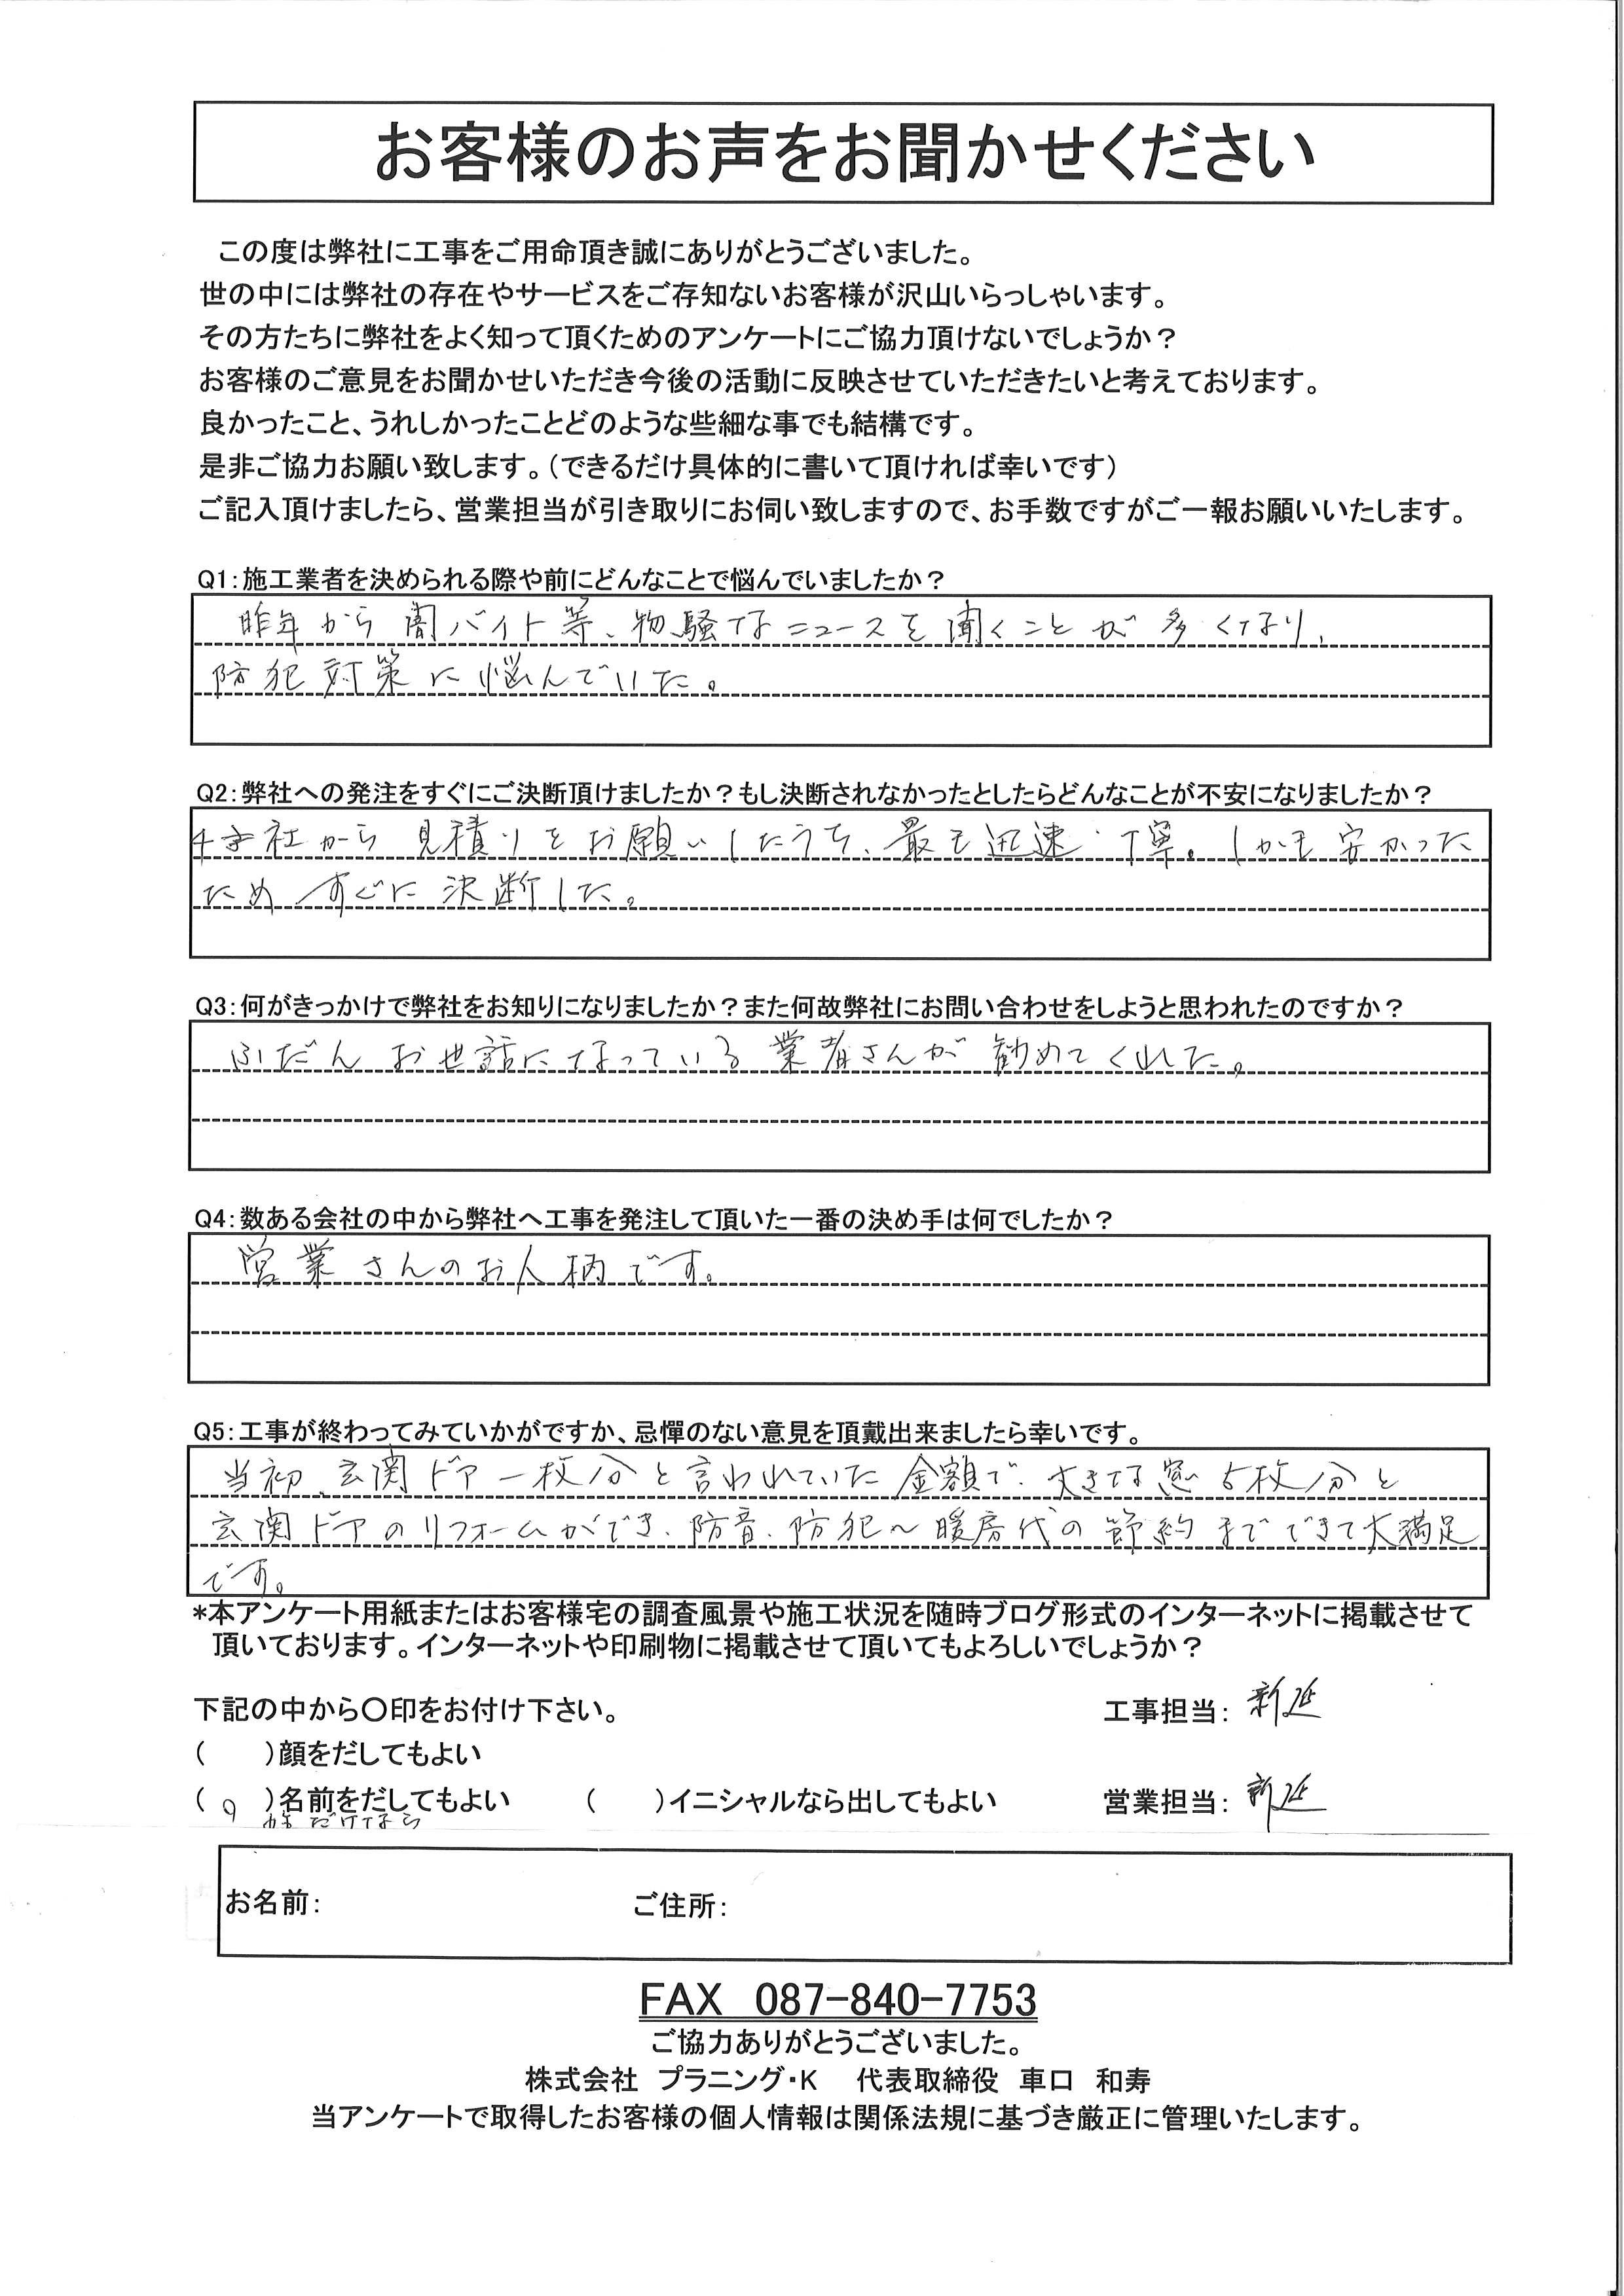 お客様のお声をお聞かせください
この度は弊社に工事をご用命頂き誠にありがとうございました。
世の中には弊社の存在やサービスをご存知ないお客様が沢山いらっしゃいます。
その方たちに弊社をよく知って頂くためのアンケートにご協力頂けないでしょうか？
お客様のご意見をお聞かせいただき今後の活動に反映させていただきたいと考えております。
良かったこと、うれしかったことどのような些細な事でも結構です。
是非ご協力お願い致します。（できるだけ具体的に書いて頂ければ幸いです）
ご記入頂けましたら、営業担当が引き取りにお伺い致しますので、お手数ですがご一報お願いいたします。
Q1：施工業者を決められる際や前にどんなことで悩んでいましたか？
昨年から闇バイト等、物騒なニュースを聞くことが多くなり、
防犯対策に悩んでいた。
Q2：弊社への発注をすぐにご決断頂けましたか？もし決断されなかったとしたらどんなことが不安になりましたか？
社から見積りをお願いしたうち、最も迅速・丁寧。しかも安かった
ためすぐに決断した。
Q3：何がきっかけで弊社をお知りになりましたか？また何故弊社にお問い合わせをしようと思われたのですか？
ふだんお世話になっている業者さんが勧めてくれた。
Q4：数ある会社の中から弊社へ工事を発注して頂いた一番の決め手は何でしたか？
営業さんのお人柄です。
Q5：工事が終わってみていかがですか、忌憚のない意見を頂戴出来ましたら幸いです。
当初、玄関ドア一枚分と言われていた金額で、大きな窓5枚分と
玄関ドアのリフォームができ、防音、防犯〜暖房代の節約までできて大満足
です。
*本アンケート用紙またはお客様宅の調査風景や施工状況を随時ブログ形式のインターネットに掲載させて
頂いております。インターネットや印刷物に掲載させて頂いてもよろしいでしょうか？
下記の中から〇印をお付け下さい。 工事担当： 新延
（　　）顔をだしてもよい
（ ○ ）名前をだしてもよい （　　）イニシャルなら出してもよい 営業担当： 新延
だけなら
お名前： ご住所：
FAX 087-840-7753
ご協力ありがとうございました。
株式会社 プラニング・K 代表取締役 車口 和寿
当アンケートで取得したお客様の個人情報は関係法規に基づき厳正に管理いたします。